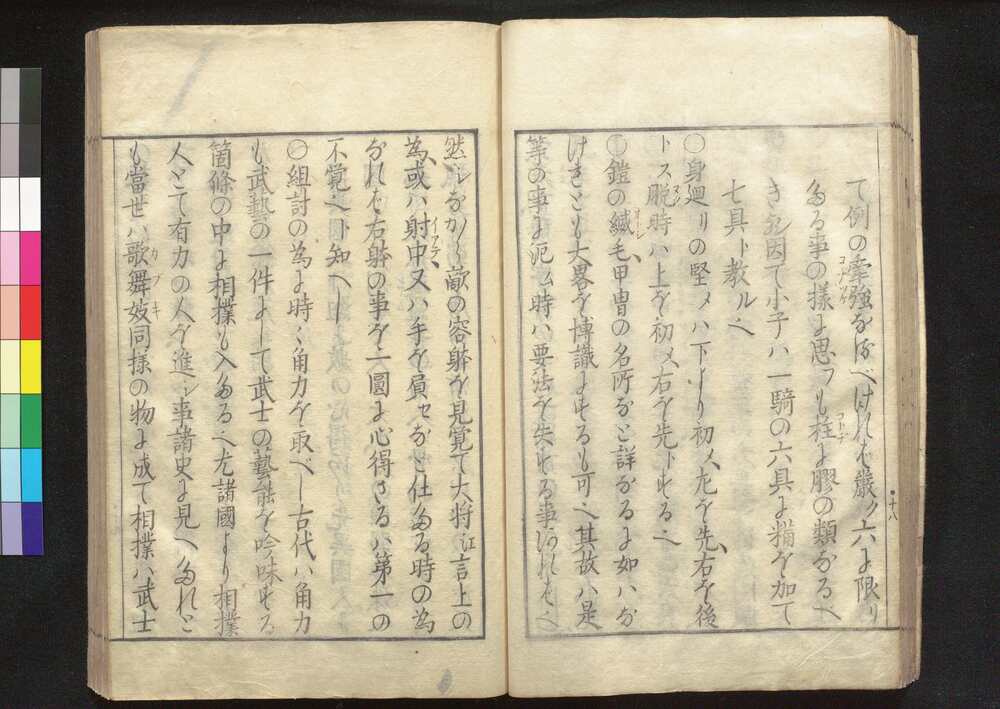 て例の牽強なるべければ嚴ク六に限リ
たる事の樣に思フも柱に膠の類なるべ
き歟因て小子ハ一騎の六具に糒を加て
七具ト教ル也
○身廻リの堅メハ下より初メ左を先右を後
トス脱時ハ上を初メ右を先トする也
○鎧の縅毛甲冑の名所など詳なるに如ハな
けれとも大畧を博識にするも可也其故ハ是
等の事に泥ム時ハ要法を失する事あれば也
然シながら敵の容躰を見覚て大将江言上の
為或ハ射中又ハ手を負セなど仕たる時の為
なれば右躰の事を一圓に心得ざるハ第一の
不覚也ト知べし
○組討の為に時々角力を取べし古代ハ角力
も武藝の一件にして武士の藝能を吟味する
箇條の中に相撲も入たる也尤諸國より相撲
人とて有力の人を進シ事諸史に見へたれと
も當世ハ歌舞妓同樣の物に成て相撲ハ武士
コジツケ
コトヂ
ヌグ
オドシ
イアテ
カブキ
十八